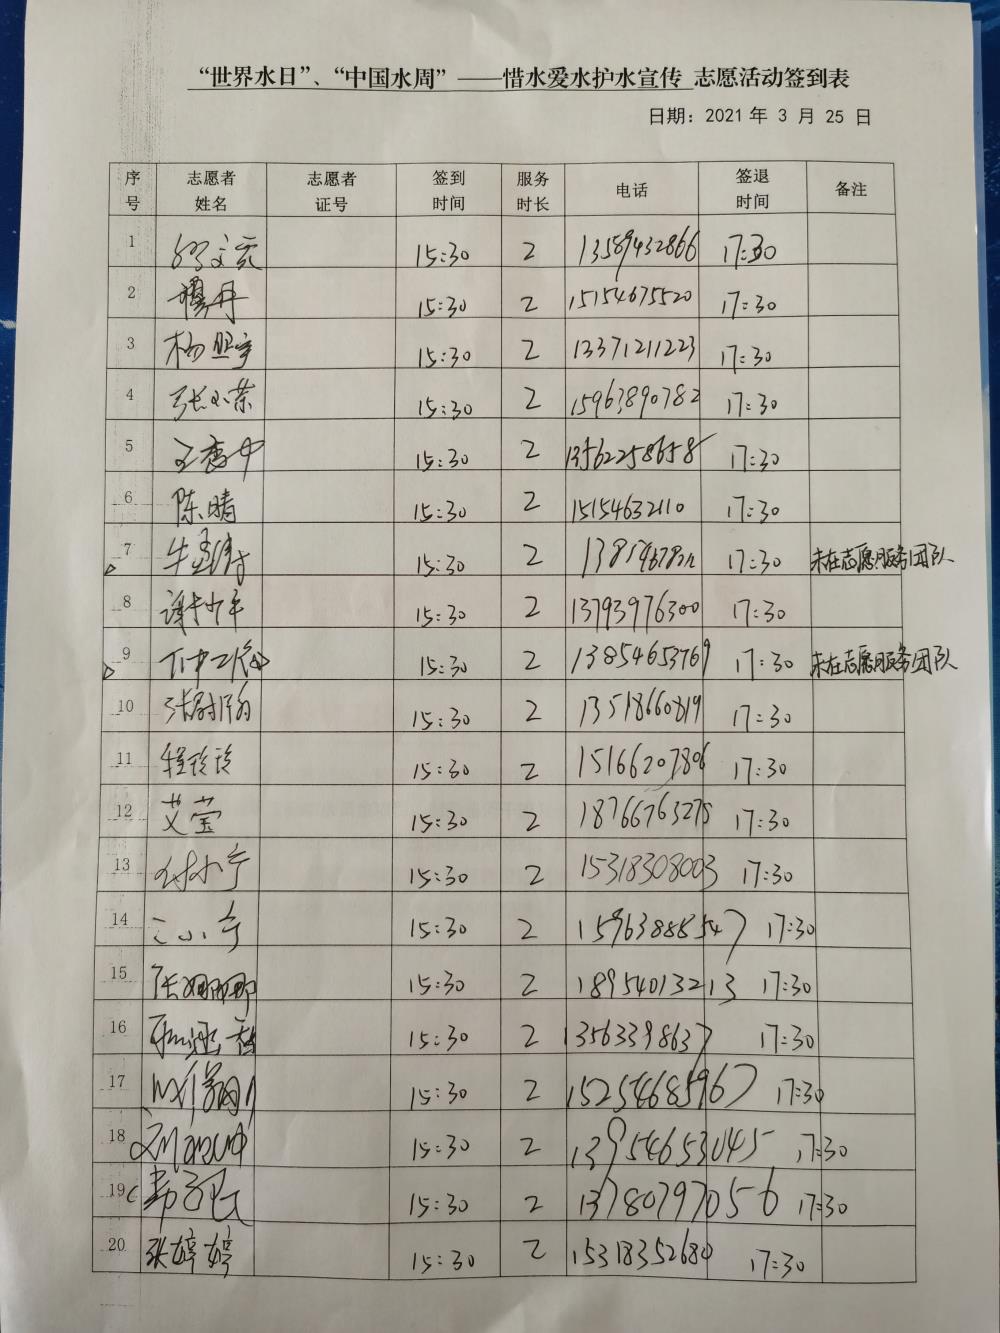 “世界水日”、“中国水周”——惜水爱水护水宣传 志愿活动签到表
日期：2021 年 3 月 25 日
序号 志愿者姓名 志愿者证号 签到时间 服务时长 电话 签退时间 备注
1 15:30 2 13589432866 17:30
2 穆丹 15:30 2 15154675520 17:30
3 杨照宇 15:30 2 13371211223 17:30
4 张小荣 15:30 2 15963890782 17:30
5 15:30 2 13562258658 17:30
6 陈晴 15:30 2 15154632110 17:30
7 15:30 2 17:30 未在志愿服务团队
8 15:30 2 13793976300 17:30
9 15:30 2 13854653769 17:30 未在志愿服务团队
10 15:30 2 13518660819 17:30
11 程玲玲 15:30 2 15166207806 17:30
12 艾莹 15:30 2 18766763275 17:30
13 付小宁 15:30 2 15318308003 17:30
14 15:30 2 15963888547 17:30
15 张娜娜 15:30 2 18954013213 17:30
16 15:30 2 13563398637 17:30
17 15:30 2 15254685967 17:30
18 15:30 2 13954653045 17:30
19 15:30 2 13780797056 17:30
20 张婷婷 15:30 2 15318352680 17:30